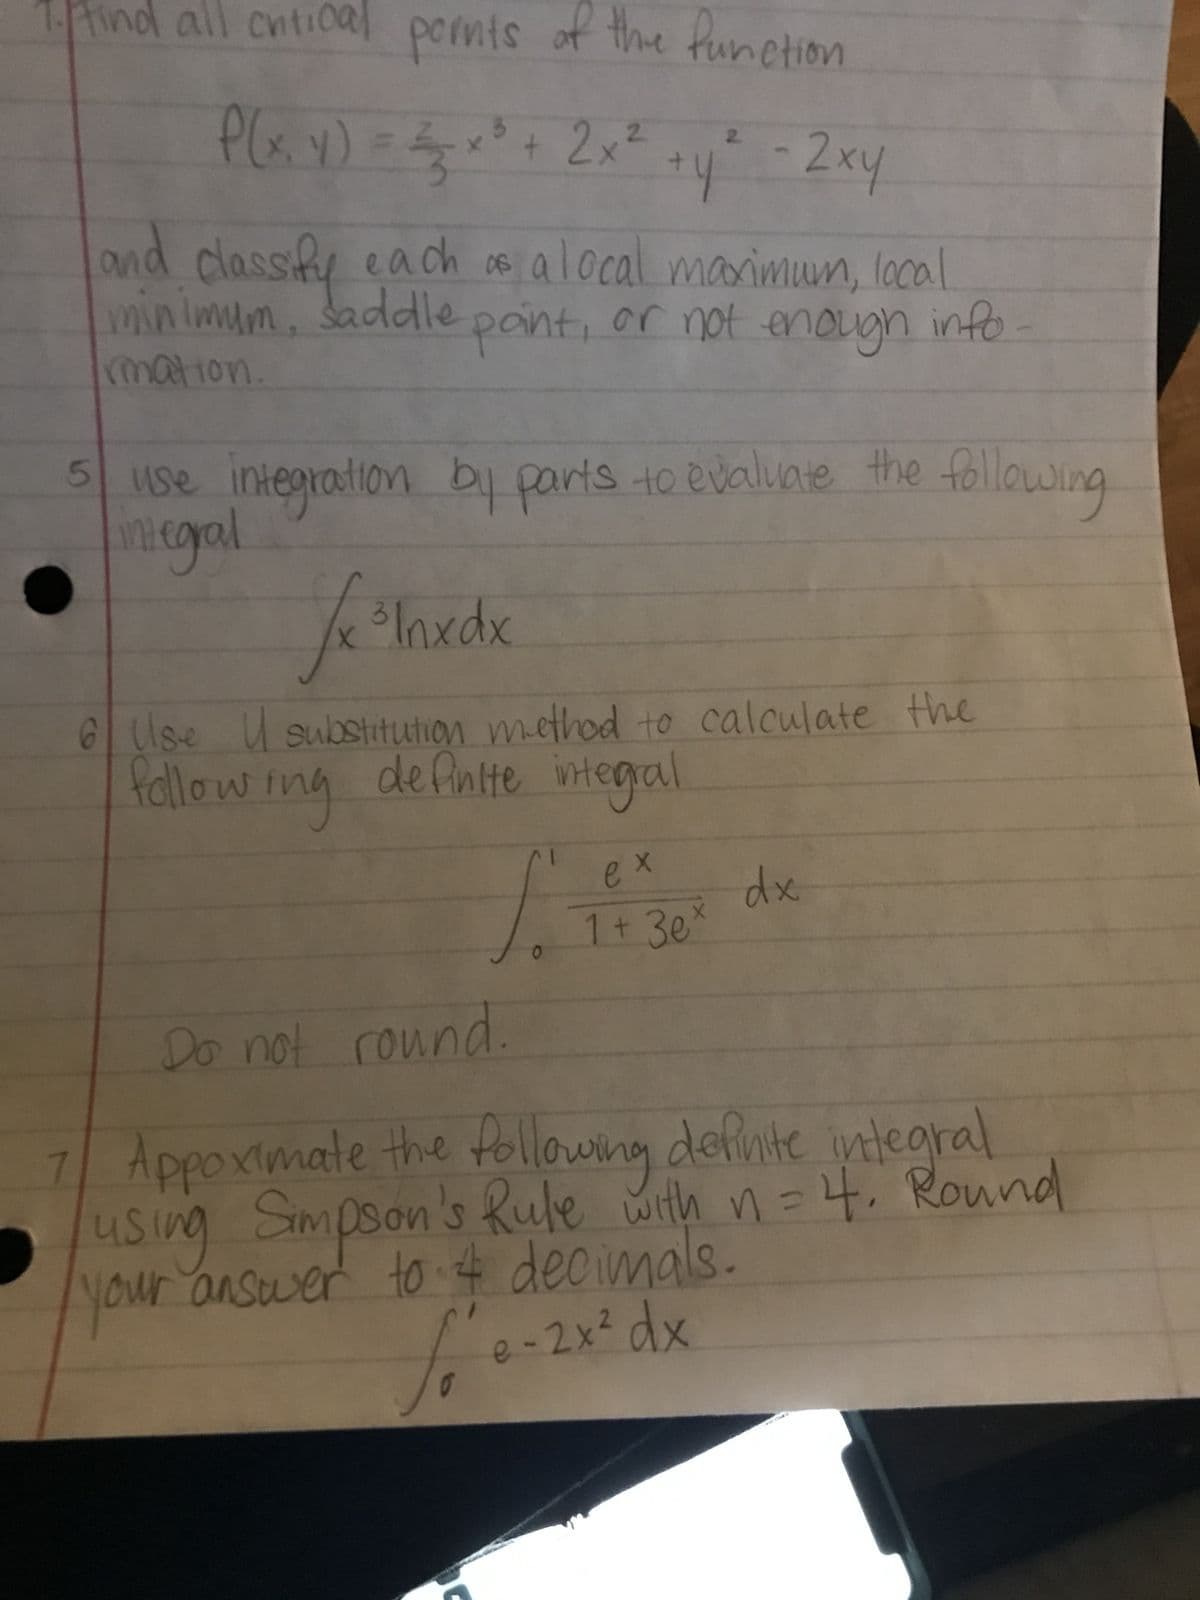 1. Find all critical points of the function
f(x, y) = 2/3 x³ + 2x² + y² - 2xy
and classify each as a local maximum, local
minimum, saddle point, or not enough info-
rmation.
5 use integration by parts to evaluate the following
integral
∫x³lnxdx
6 Use U substitution method to calculate the
following definite integral
∫₀¹ eˣ / 1 + 3eˣ dx
Do not round.
7 Appoximate the following definite integral
using Simpson's Rule with n = 4. Round
your answer to 4 decimals.
∫₀¹ e - 2x² dx